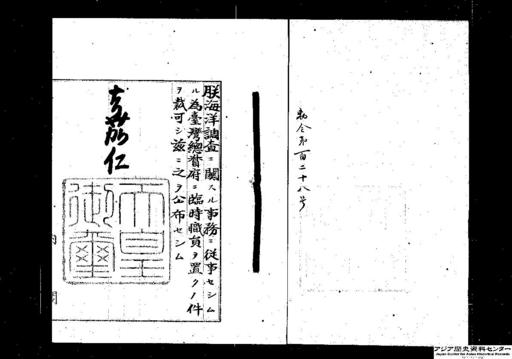 勅令第百二十八号
朕海洋調査ニ關スル事務ニ從事セシム
ル為臺灣總督府ニ臨時職員ヲ置クノ件
ヲ裁可シ茲ニ之ヲ公布セシム
嘉仁
天皇
御璽
内閣
アジア歴史資料センター
Japan Center for Asian Historical Records